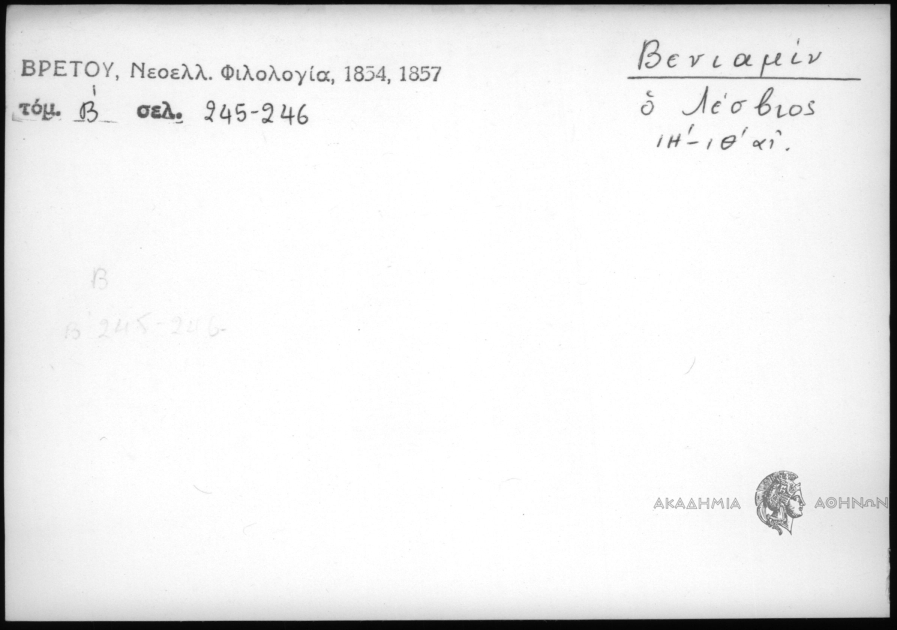 ΒΡΕΤΟΥ, Νεοελλ. Φιλολογία, 1854, 1857
τόμ. Β' σελ. 245-246
Βενιαμίν
ὁ Λέσβιος
ΙΗ'-ΙΘ' αἰ.
Β
Β' 245-246
ΑΚΑΔΗΜΙΑ ΑΘΗΝΩΝ